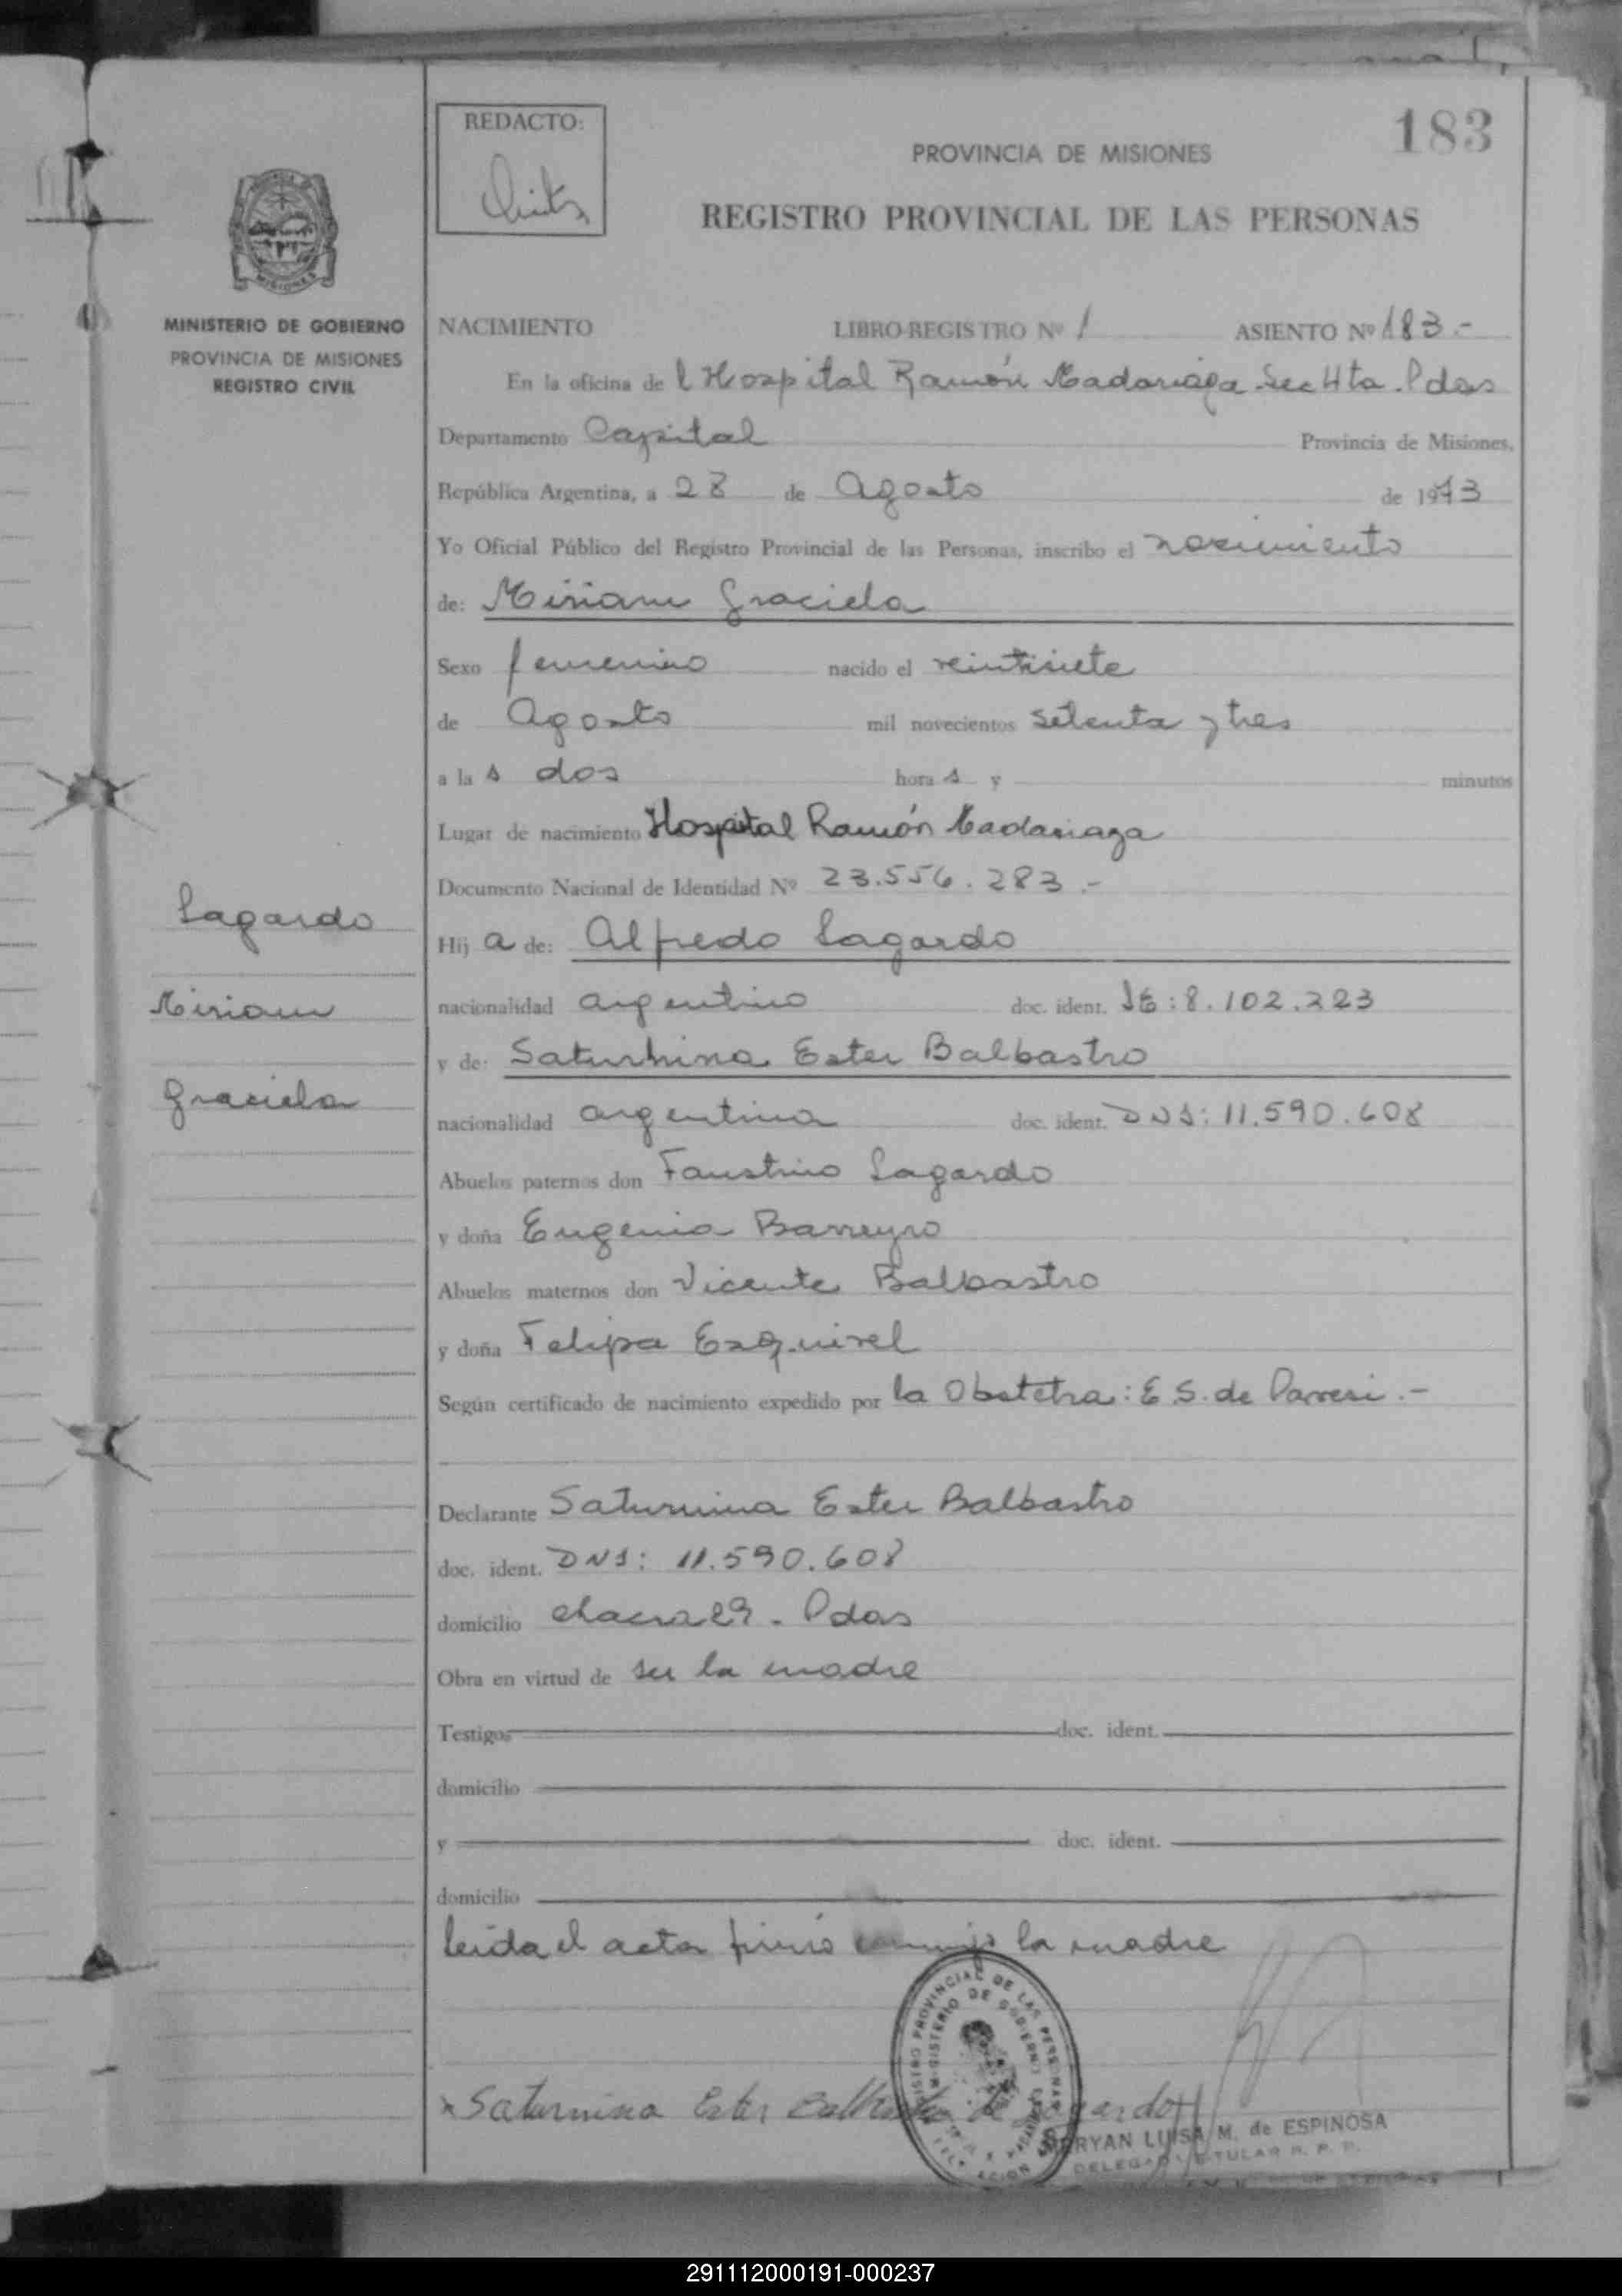 183
REDACTO:
PROVINCIA DE MISIONES
REGISTRO PROVINCIAL DE LAS PERSONAS
MISIONES
MINISTERIO DE GOBIERNO
PROVINCIA DE MISIONES
REGISTRO CIVIL
NACIMIENTO LIBRO-REGISTRO Nº 1 ASIENTO Nº 183.-
En la oficina del Hospital Ramón Madariaga Sec 4ta. Pdas
Departamento Capital Provincia de Misiones,
República Argentina, a 28 de Agosto de 1973
Yo Oficial Público del Registro Provincial de las Personas, inscribo el nacimiento
de: Miriam Graciela
Sexo femenino nacido el veintisiete
de Agosto mil novecientos setenta y tres
a las dos horas y minutos
Lugar de nacimiento Hospital Ramón Madariaga
Documento Nacional de Identidad Nº 23.556.283.-
Lagardo
Hija de: Alfredo Lagardo
Miriam
nacionalidad argentino doc. ident. LE: 8.102.223
y de: Saturnina Ester Balbastro
Graciela
nacionalidad argentina doc. ident. DNI: 11.590.608
Abuelos paternos don Faustino Lagardo
y doña Eugenia Barreyro
Abuelos maternos don Vicente Balbastro
y doña Felipa Esquivel
Según certificado de nacimiento expedido por la Obstetra: E.S. de
Declarante Saturnina Ester Balbastro
doc. ident. DNI: 11.590.608
domicilio chacra 29 - Pdas
Obra en virtud de ser la madre
Testigos doc. ident.
domicilio
y doc. ident.
domicilio
leída el acta firmó conmigo la madre
REGISTRO PROVINCIAL DE LAS PERSONAS
MINISTERIO DE GOBIERNO
x Saturnina Ester Balbastro de Lagardo
MERYAN LUISA M. de ESPINOSA
DELEGADA TITULAR R. P. P.
291112000191-000237